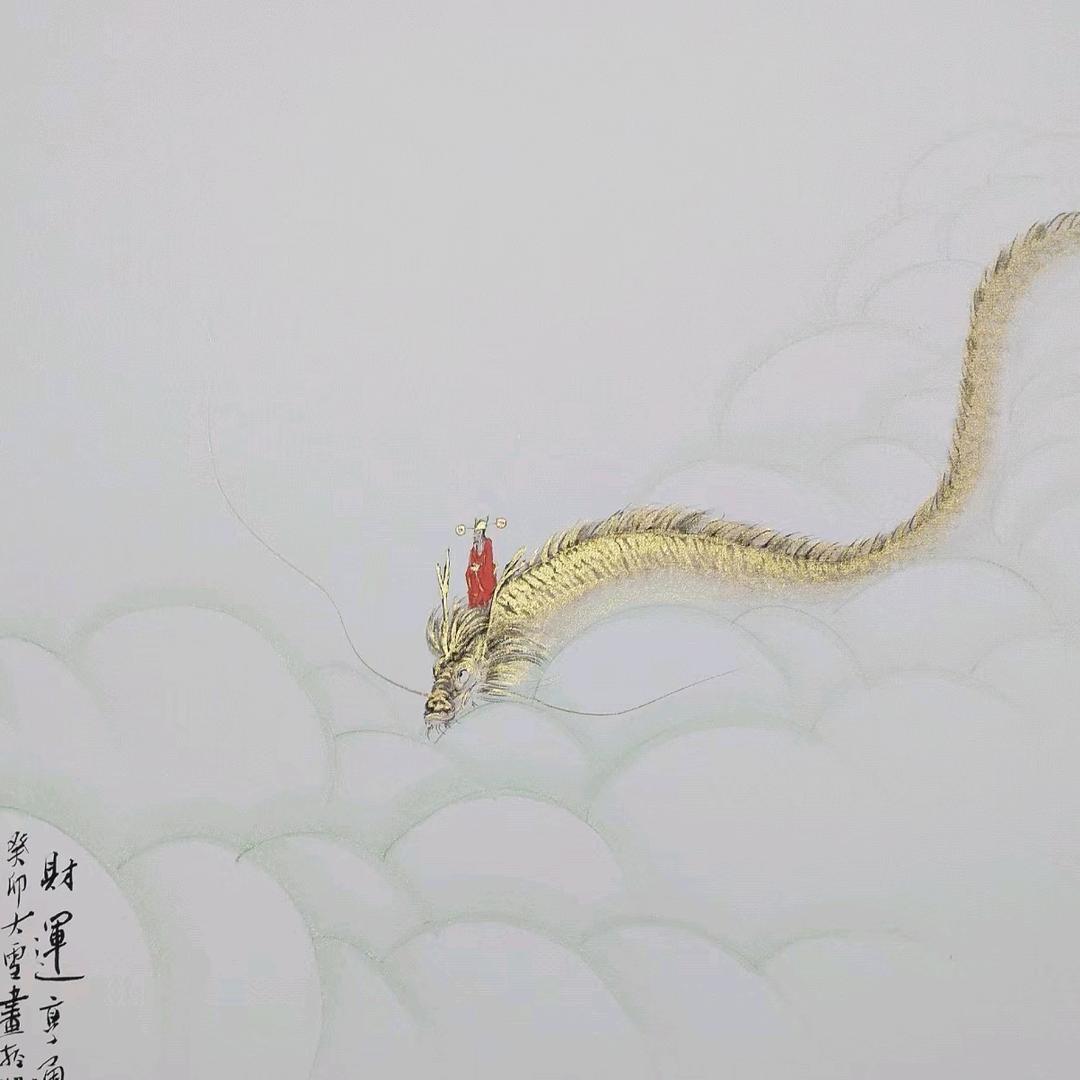 財運亨通
癸卯大雪畫於